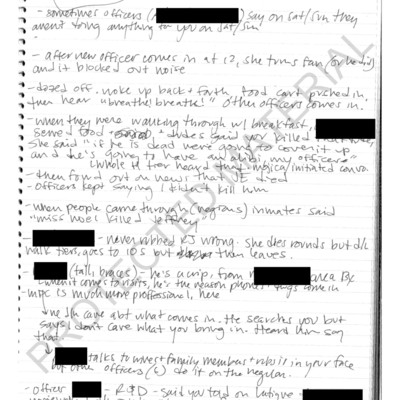 - sometimes officers ( say on sat/sun they
aren't doing anything for you on sat/sun
- after new officer comes in at 12, she turns fan (or
and it blocked out noise
- dozed off. woke up back + forth. food cart pushed in.
then hear "breathe! breathe!" other officers comes in.
- when they were walking through w/ breakfast,
served food + dudes said you killed
she said "if he is dead we're going to cover it up
and he's going to have an alibi, my officers"
whole tier heard that. initiated convo
- then found out on news that JE died
- officers kept saying I didn't kill him
- when people came through inmates said
"miss noel killed jeffrey"
- never rubbed RJ wrong. she does rounds but did
walk tiers, goes to 10s but then leaves.
(tall, braces) - he's a crip, from area Bx
when it comes to visits, he's the reason phones + drugs come in
- MDC is much more professional, here
care abt what comes in. He searches you but
says I don't care what you bring in. Heard him say
that
talks to wives + family members + in your face
other officers (6) do it on the regular.
- officer - R&D - said you told on -
PROTECTED MATERIAL